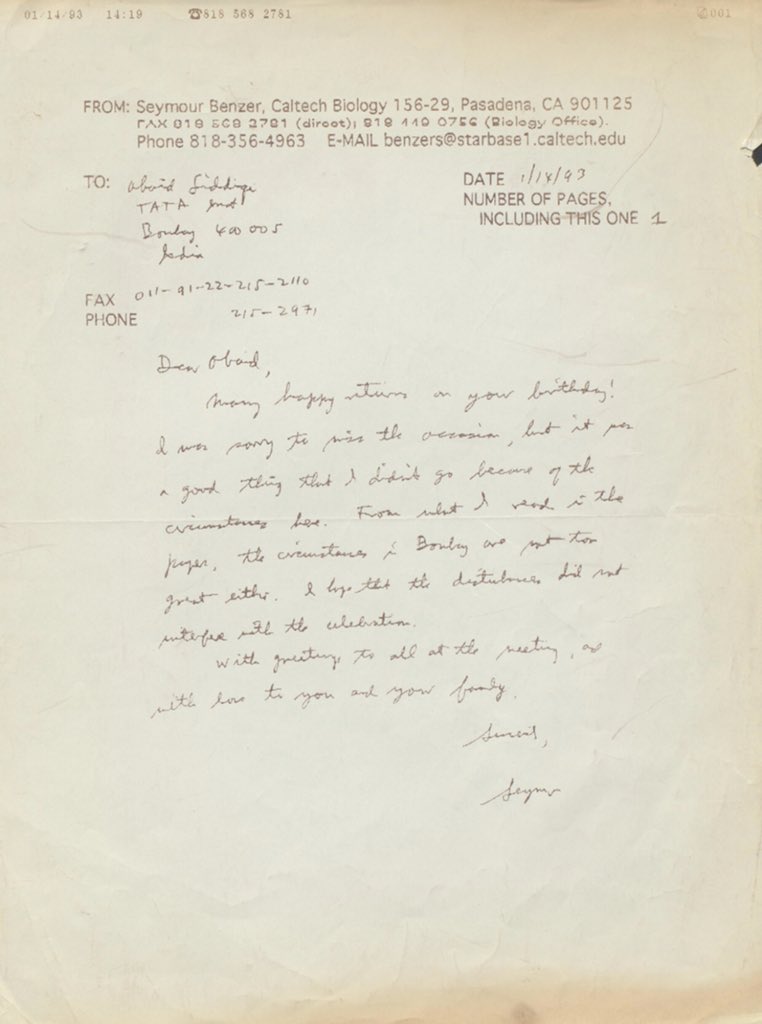 01/14/93 14:19 ☎818 568 2781 001
FROM: Seymour Benzer, Caltech Biology 156-29, Pasadena, CA 901125
FAX 818 568 2781 (direct); 818 449 0756 (Biology Office).
Phone 818-356-4963 E-MAIL benzers@starbase1.caltech.edu
TO: Obaid Siddiqi
TATA Inst
Bombay 400 005
India
DATE 1/14/93
NUMBER OF PAGES,
INCLUDING THIS ONE 1
FAX 011-91-22-215-2110
PHONE 215-2971
Dear Obaid,
Many happy returns on your birthday!
I was sorry to miss the occasion, but it was
a good thing that I didn't go because of the
circumstances here. From what I read in the
papers, the circumstances in Bombay are not too
great either. I hope that the disturbances did not
interfere with the celebration.
With greetings to all at the meeting, and
with love to you and your family,
Sincerely,
Seymour